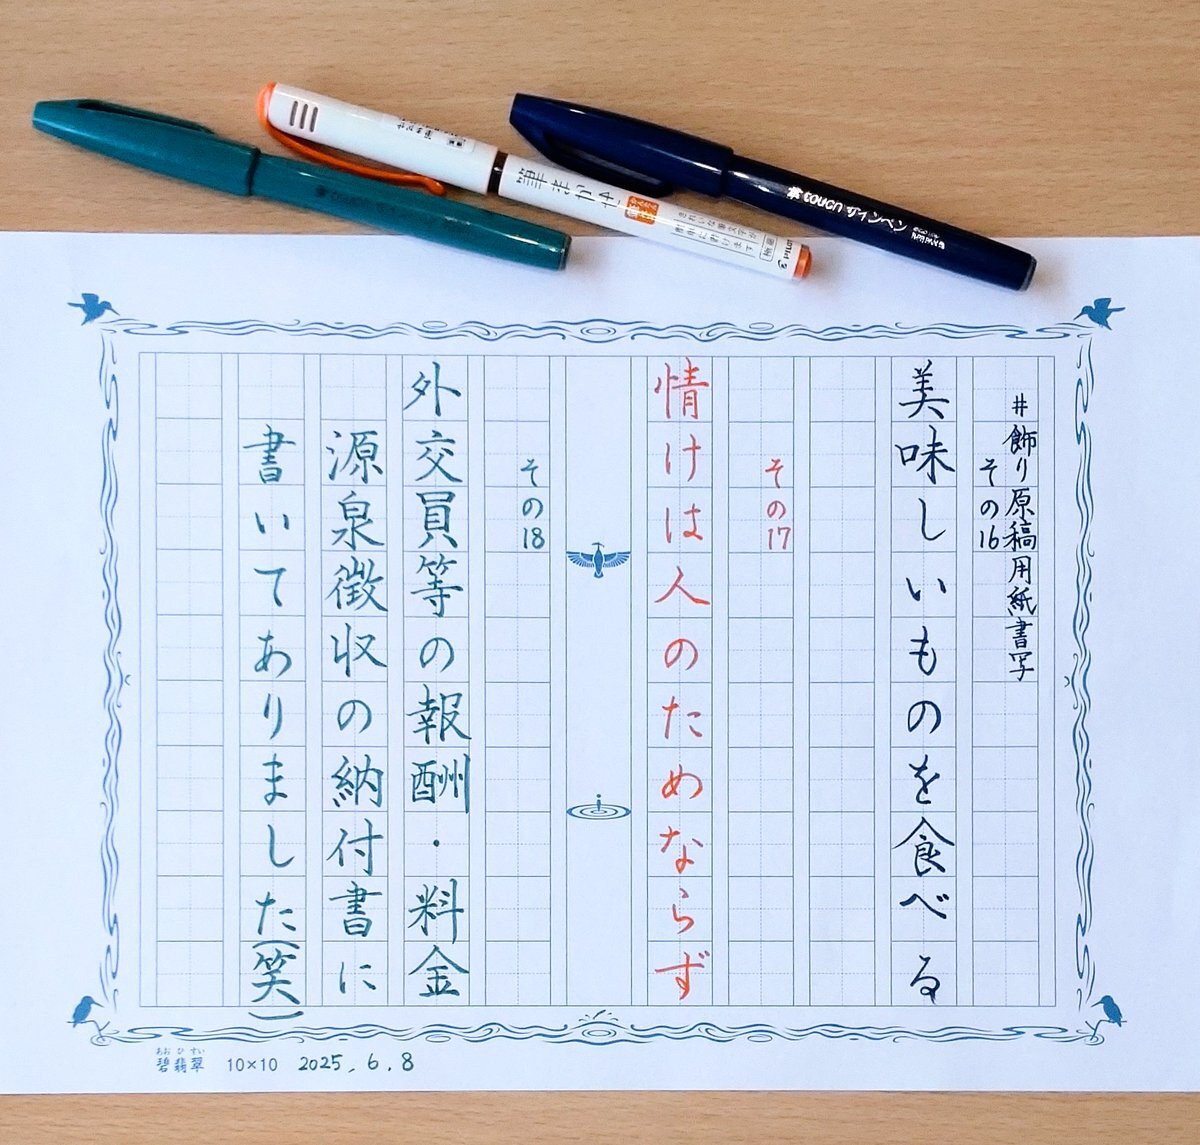 筆まかせ
touch サインペン
PILOT
#飾り原稿用紙書写
その16
美味しいものを食べる
その17
情けは人のためならず
その18
外交員等の報酬・料金
源泉徴収の納付書に
書いてありました(笑)
あおひすい
碧翡翠 10×10 2025.6.8